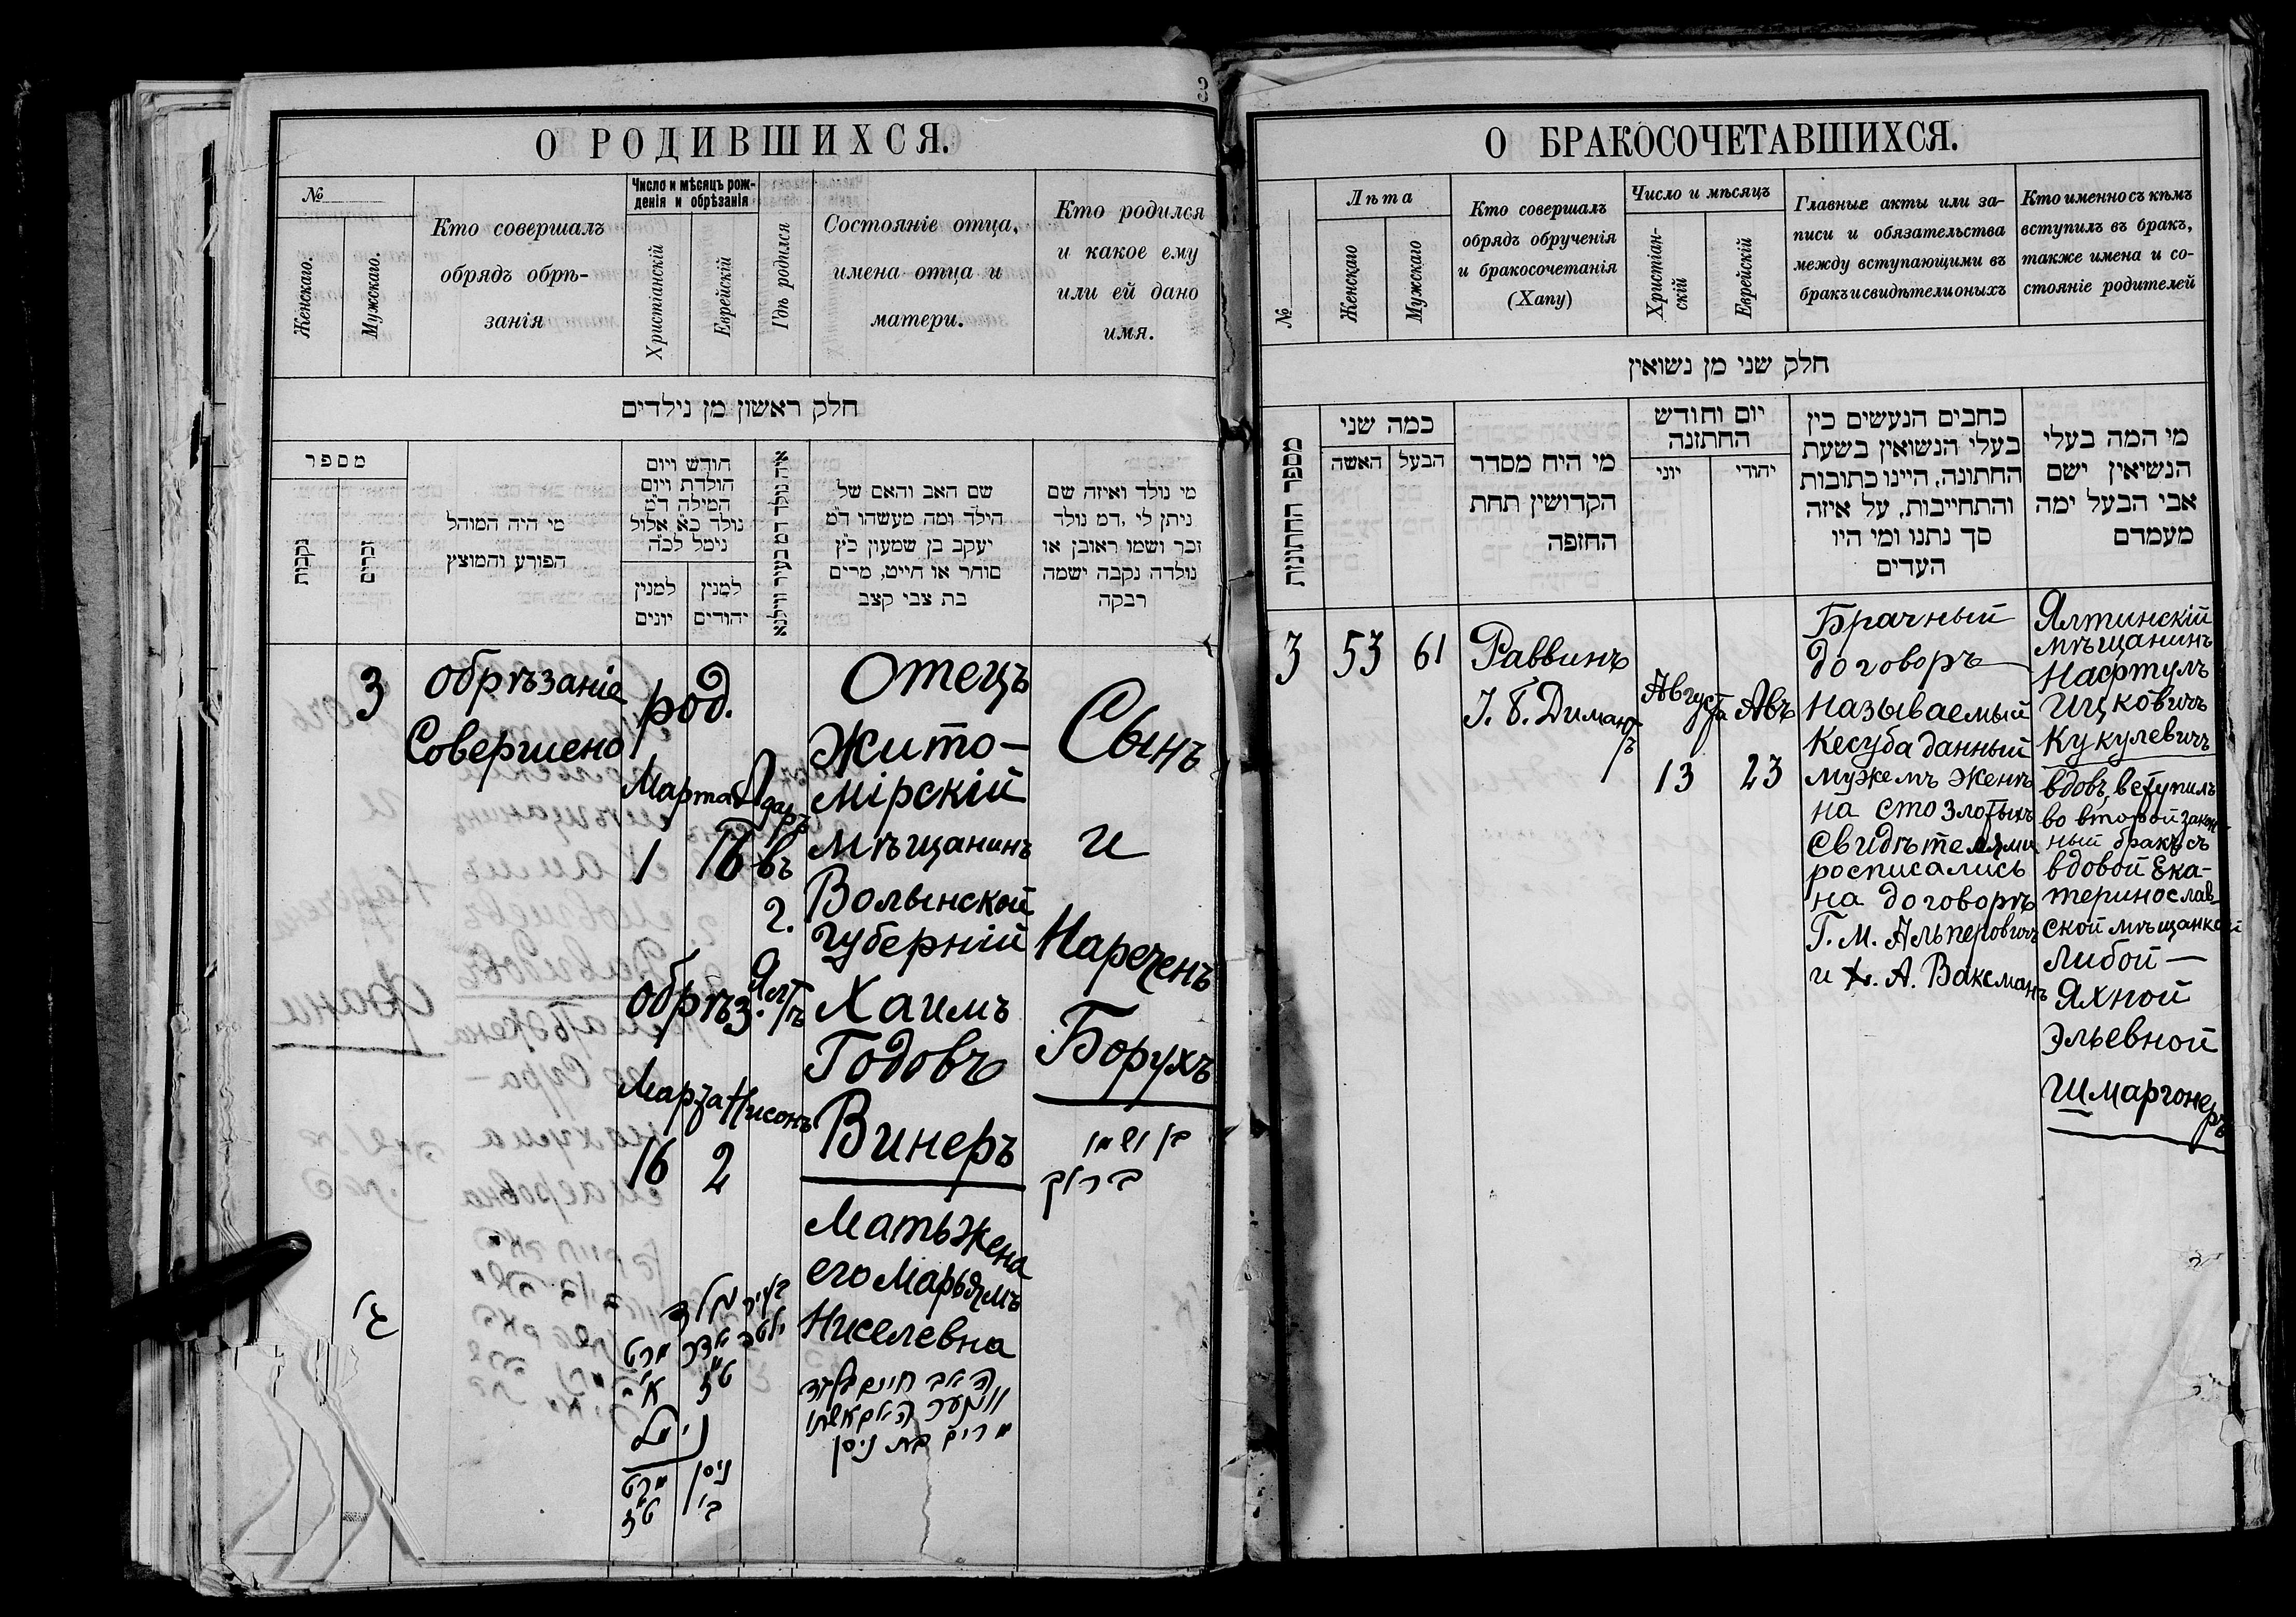 3
О РОДИВШИХСЯ.
№
Женскаго.
Мужскаго.
Кто совершалъ
обрядъ обрѣ-
занія
Число и мѣсяцъ рож-
денія и обрѣзанія
Христіанскій
Еврейскій
Гдѣ родился
Состояніе отца,
имена отца и
матери.
Кто родился
и какое ему
или ей дано
имя.
חלק ראשון מן נילדים
מספר
נקבות
זכרים
מי היה המוהל
הפורע והמוצץ
חודש ויום
הולדת ויום
המילה ד״מ
נולד כ״א אלול
נימל לב״ה
למנין
יונים
למנין
יהודים
שם האב והאם של
הילד ומה מעשהו ד״מ
יעקב בן שמעון כ״ץ
סוחר או חייט, מרים
בת צבי קצב
מי נולד ואיזה שם
ניתן לי ,דמ נולד
זכר ושמו ראובן או
נולדה נקבה ישמה
רבקה
3
обрѣзаніе
Совершено
род.
Марта
Адаръ
1
16
въ
г.
Ялтѣ
обрѣз.
Марта
Нисонъ
16
2
Отецъ
Жито-
мірскій
мѣщанинъ
Волынской
губерніи
Хаимъ
Годовъ
Винеръ
Мать жена
его Марьямъ
Ниселевна
Сынъ
и
Нареченъ
Борухъ
בן ושמו
ברוך
ג׳
בעיר
נולד
אדר
מרט
ט״ז
א׳
נימול
ניסן
מרט
ב׳
ט״ז
האב חיים
ווינער האם אשתו
מרים בת ניסן
О БРАКОСОЧЕТАВШИХСЯ.
№
Лѣта
Женскаго
Мужскаго
Кто совершалъ
обрядъ обрученія
и бракосочетанія
(Хапу)
Число и мѣсяцъ
Христіан-
скій
Еврейскій
Главные акты или за-
писи и обязательства
между вступающими въ
бракъ и свидѣтели оныхъ
Кто именно съ кѣмъ
вступилъ въ бракъ,
также имена и со-
стояніе родителей
חלק שני מן נשואין
מספר החתונות
כמה שני
האשה
הבעל
מי היח מסדר
הקדושין תחת
החופה
יום וחודש
החתונה
יוני
יהודי
כחבים הנעשים כין
בעלי הנשואין בשעת
החתונה, היינו כתובות
והתחייבות, על איזה
סך נתנו ומי היו
העדים
מי המה בעלי
הנשיאין ישם
אבי הבעל ימה
מעמדם
3
53
61
Раввинъ
І. Б. Димантъ
Августа
Авъ
13
23
Брачный
договоръ
Называемый
Кесуба данный
мужемъ женѣ
на сто злотыхъ
Свидѣтелями
росписались
на договорѣ
Г. М. Альперовичъ
и А. Ваксманъ
Ялтинскій
мѣщанинъ
Нафтулъ
Ицковичъ
Кукулевичъ
вдовъ, вступилъ
во второй закон-
ный бракъ съ
вдовой Ека-
теринослав-
ской мѣщанкой
Либой-
Яхной
Эльевной
Шмаргонеръ